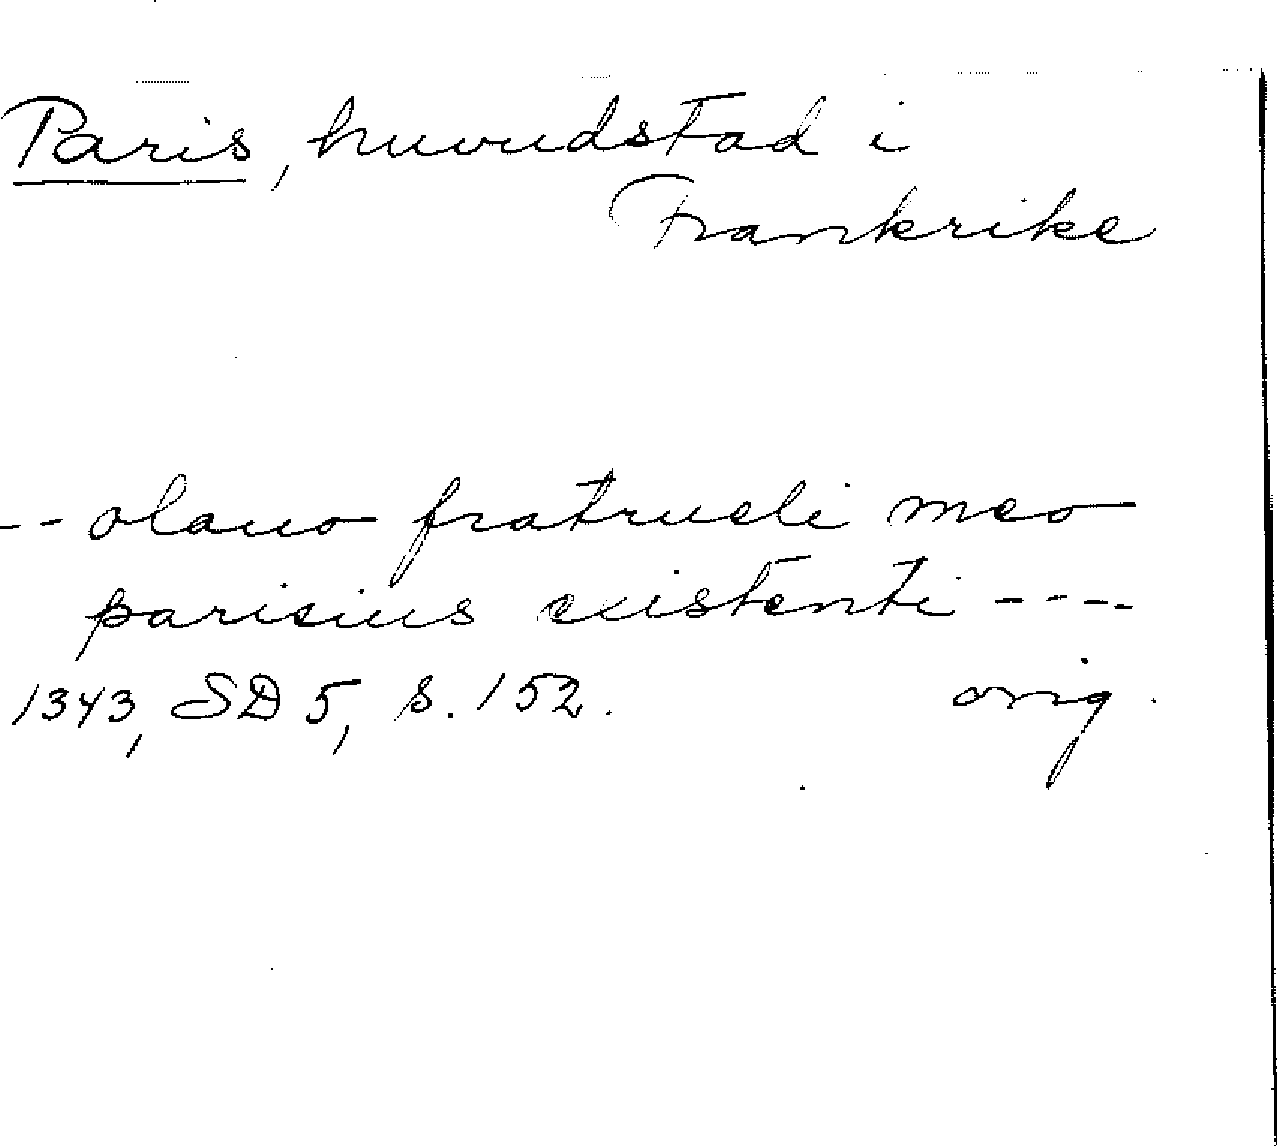 Paris, huvudstad i
Frankrike
-- olauo fratrueli meo
parisius existenti ----
1343, SD 5, s. 152. orig.